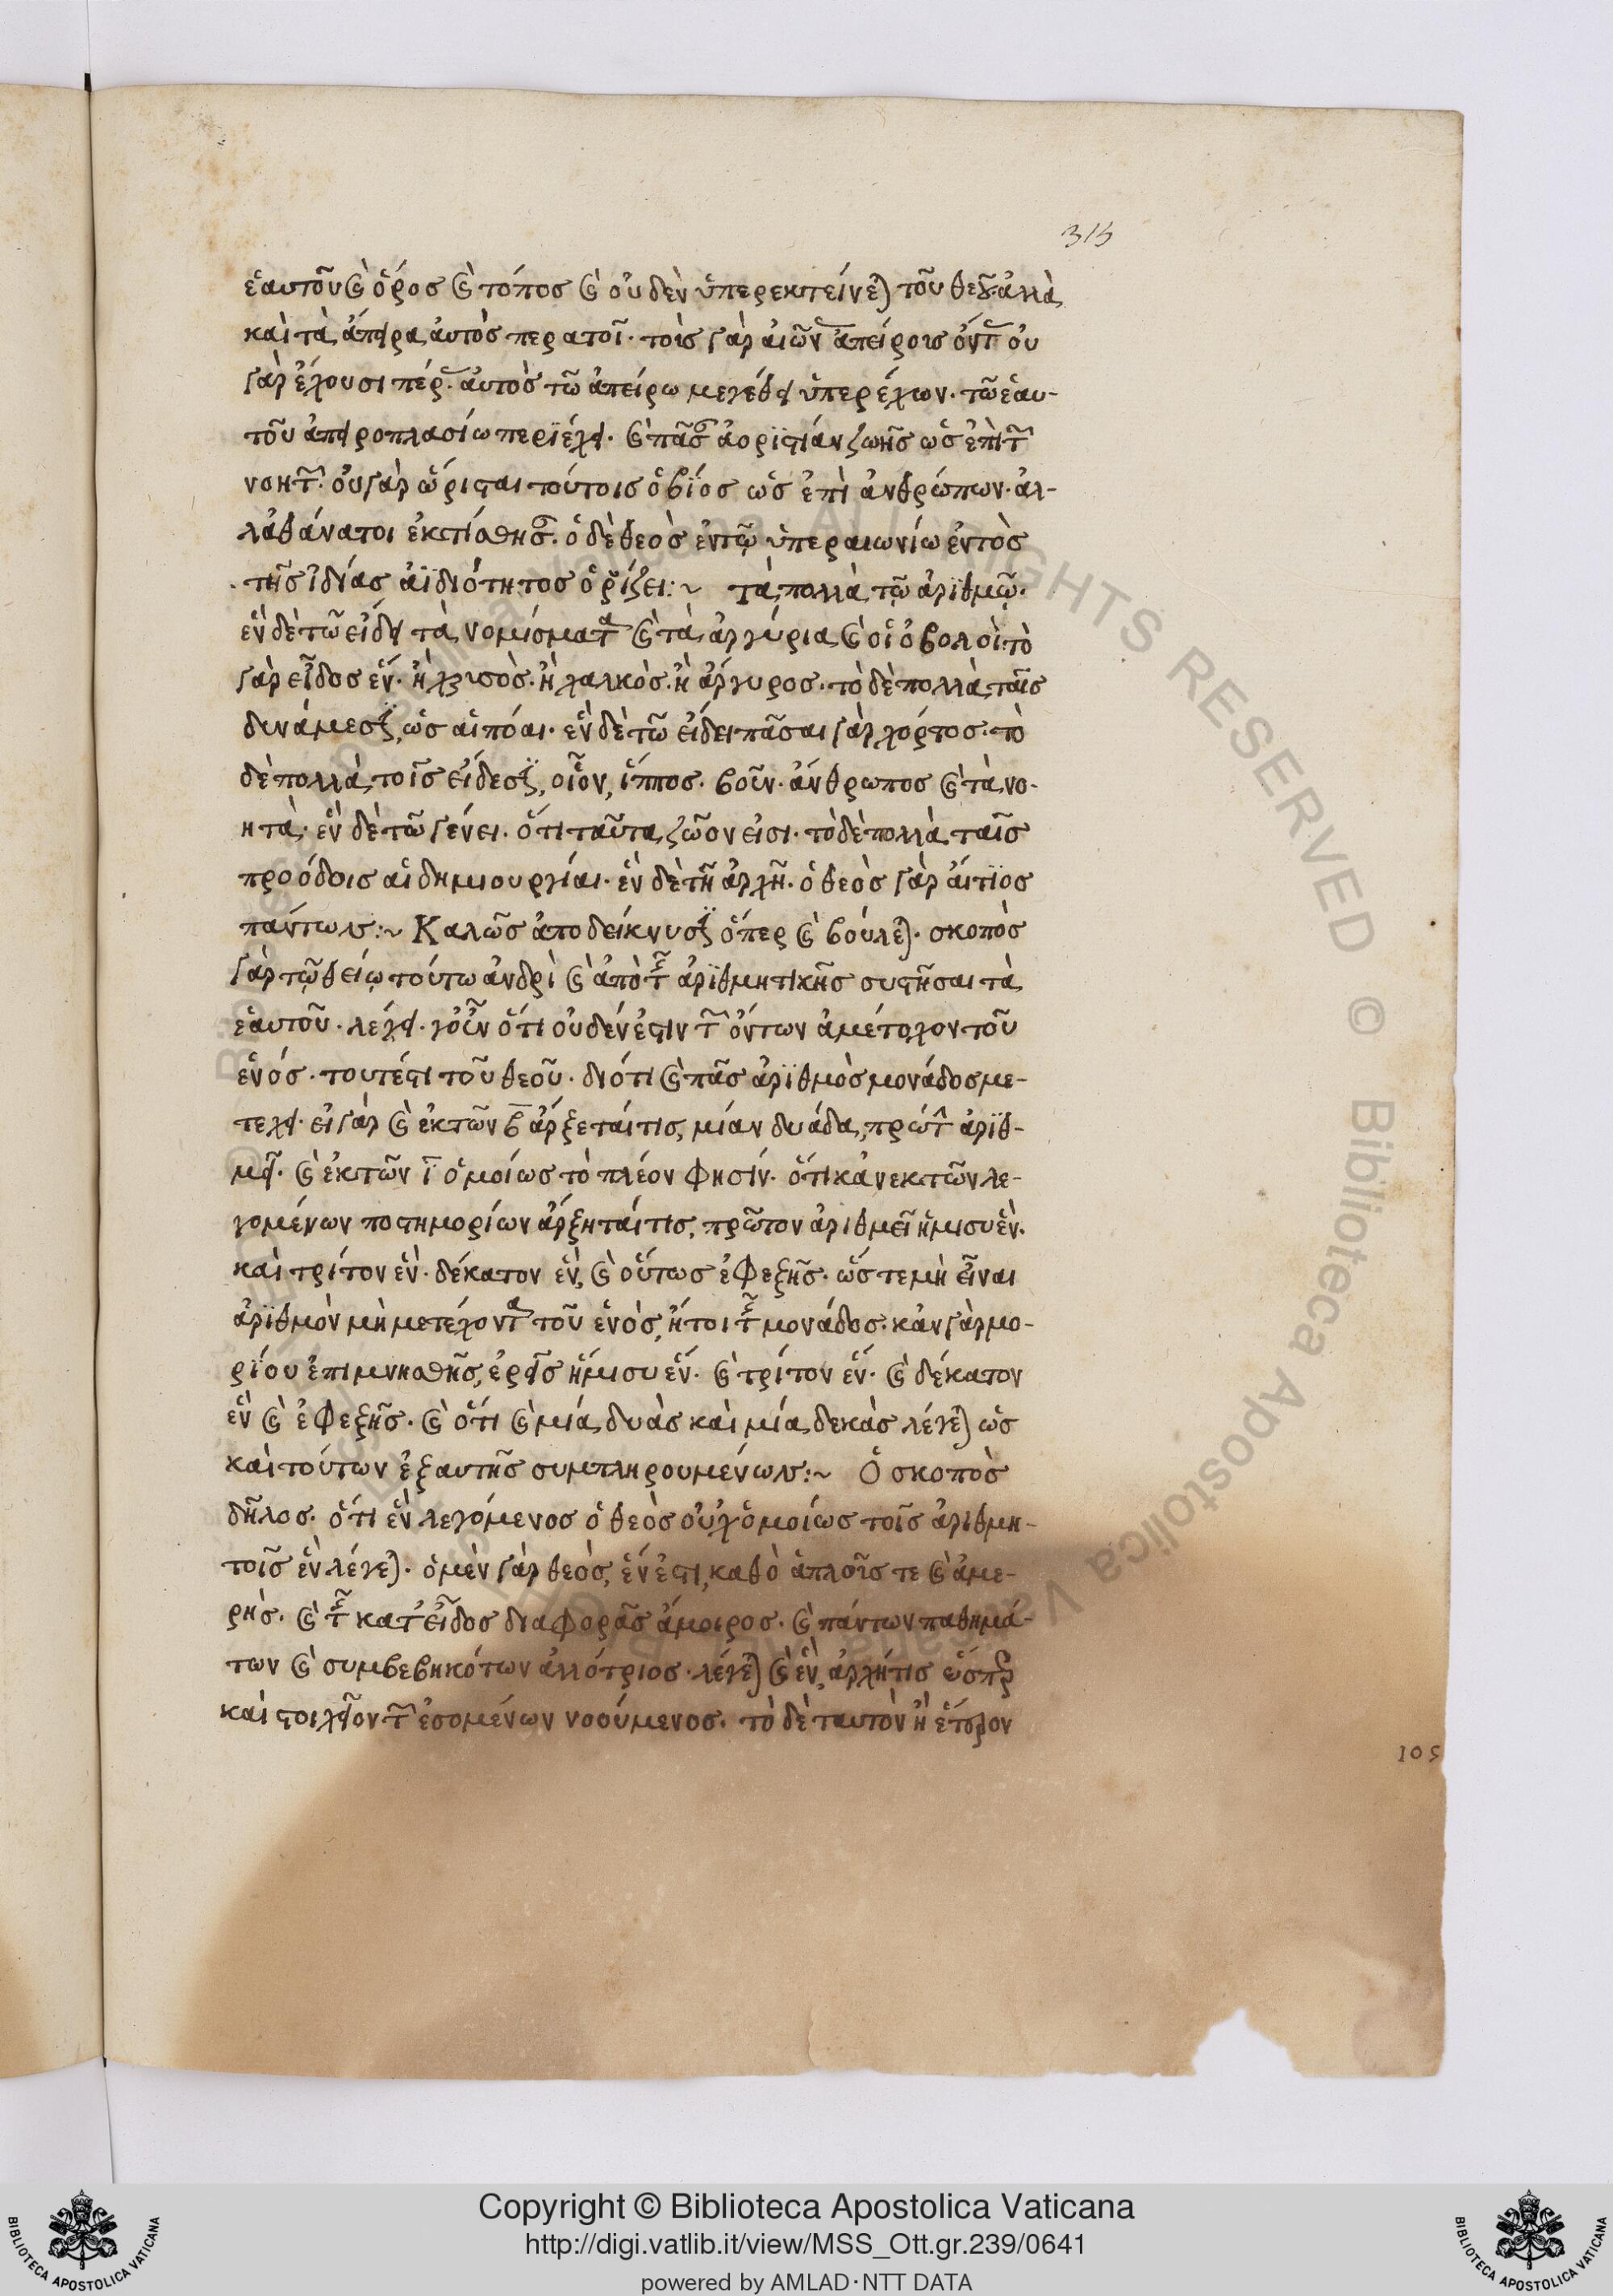 315
ἑαυτοῦ καὶ ὅρος καὶ τόπος καὶ οὐδὲν ὑπερεκτείνεται τοῦ θεοῦ· ἀλλὰ
καὶ τὰ ἄπειρα αὐτὸς περατοῖ· τοῖς γὰρ αἰῶσιν ἀπείροις οὖσιν οὐ
γὰρ ἔχουσι πέρας· αὐτὸς τῶ ἀπείρω μεγέθει ὑπερέχων· τῶ ἑαυ-
τοῦ ἀπειροπλασίω περιέχει· καὶ πᾶσαν ἀοριστίαν ζωῆς ὡς ἐπὶ τῶν
νοητῶν· οὐ γὰρ ὥρισται τούτοις ὁ βίος ὡς ἐπὶ ἀνθρώπων· ἀλ-
λ' ἀθάνατοι ἐκτίσθησαν· ὁ δὲ θεὸς ἐν τῷ ὑπεραιωνίω ἐντὸς
τῆς ἰδίας ἀϊδιότητος ὁρίζει:~ Τὰ πολλὰ τῷ ἀριθμῷ·
ἓν δὲ τῶ εἴδει τὰ νομίσματα καὶ τὰ ἀργύρια καὶ οἱ ὀβολοί· τὸ
γὰρ εἶδος ἕν· ἢ χρυσὸς· ἢ χαλκὸς· ἢ ἄργυρος· τὸ δὲ πολλὰ ταῖς
δυνάμεσιν, ὡς αἱ πόαι· ἓν δὲ τῶ εἴδει πᾶσαι γὰρ χόρτος· τὸ
δὲ πολλὰ τοῖς εἴδεσιν, οἷον, ἵππος· βοῦν· ἄνθρωπος καὶ τὰ νο-
ητὰ· ἓν δὲ τῶ γένει· ὅτι ταῦτα ζῶον εἰσι· τὸ δὲ πολλὰ ταῖς
προόδοις αἱ δημιουργίαι· ἓν δὲ τῆ ἀρχῆ· ὁ θεὸς γὰρ αἴτιος
πάντων:~ Καλῶς ἀποδείκνυσιν ὅπερ καὶ βούλεται· σκοπὸς
γὰρ τῷ θείῳ τούτω ἀνδρὶ καὶ ἀπὸ τῆς ἀριθμητικῆς συστῆσαι τὰ
ἑαυτοῦ· λέγει· γοῦν ὅτι οὐδέν ἐστιν τῶν ὄντων ἀμέτοχον τοῦ
ἑνός· τουτέστι τοῦ θεοῦ· διότι καὶ πᾶς ἀριθμὸς μονάδος με-
τέχει· εἰ γὰρ καὶ ἐκ τῶν β ἄρξεταί τις, μίαν δυάδα, πρῶτον ἀριθ-
μεῖ· καὶ ἐκ τῶν ι ὁμοίως τὸ πλέον φησίν· ὅτι κἂν ἐκ τῶν λε-
γομένων ποστημορίων ἄρξηταί τις, πρῶτον ἀριθμεῖ ἥμισυ ἕν·
καὶ τρίτον ἕν· δέκατον ἕν, καὶ οὕτως ἐφεξῆς· ὥστε μὴ εἶναι
ἀριθμὸν μὴ μετέχοντα τοῦ ἑνὸς, ἤτοι τῆς μονάδος· κἂν γὰρ μο-
ρίου ἐπιμνησθῆς, ἐρεῖς ἥμισυ ἕν· καὶ τρίτον ἕν· καὶ δέκατον
ἓν καὶ ἐφεξῆς· καὶ ὅτι καὶ μία δυὰς καὶ μία δεκὰς λέγεται ὡς
καὶ τούτων ἐξ αυτῆς συμπληρουμένων:~ Ὁ σκοπὸς
δῆλος· ὅτι ἓν λεγόμενος ὁ θεὸς οὐχ ὁμοίως τοῖς ἀριθμη-
τοῖς ἓν λέγεται· ὁ μὲν γὰρ θεὸς, ἕν ἐστι, καθὸ ἁπλοῦς τε καὶ ἀμε-
ρὴς· καὶ τῆς κατ' εἶδος διαφορᾶς ἄμοιρος· καὶ πάντων παθημά-
των καὶ συμβεβηκότων ἀλλότριος· λέγεται καὶ ἓν, ἀρχή τις ὥσπερ
καὶ στοιχεῖον τῶν ἐσομένων νοούμενος· τὸ δὲ ταυτὸν ἢ ἕτερον
105
Copyright © Biblioteca Apostolica Vaticana
http://digi.vatlib.it/view/MSS_Ott.gr.239/0641
powered by AMLAD·NTT DATA